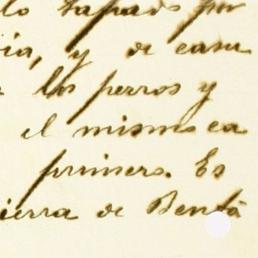 lo tapado por
ia, y de casa
los perros y
el mismo ca
primero. Es
ierra de Benta